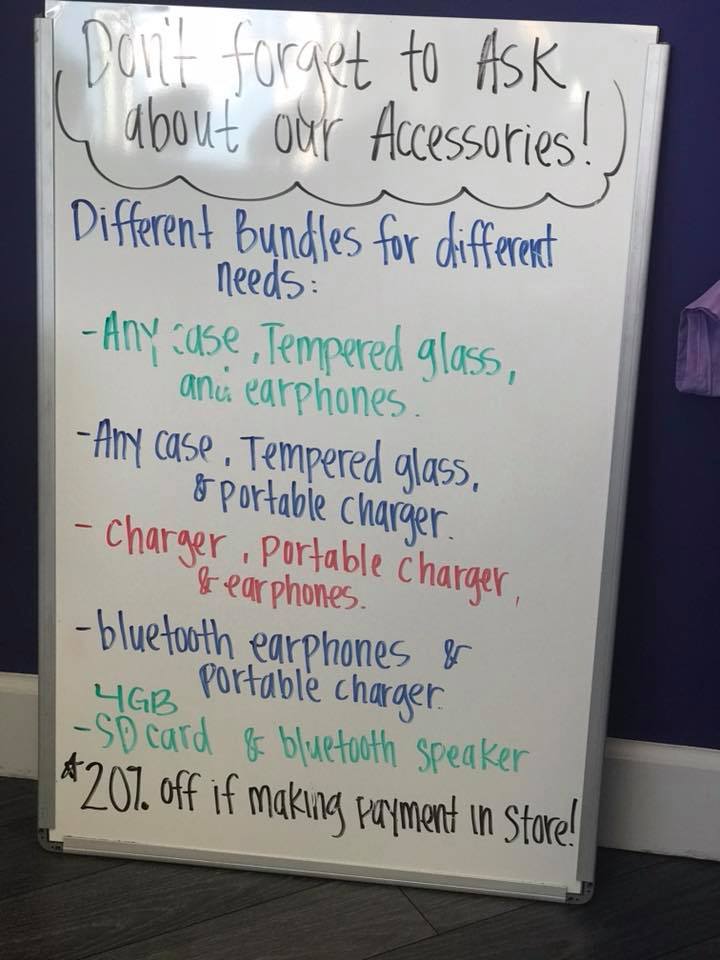 Don't forget to Ask
about our Accessories!
Different Bundles for different
needs:
-Any case, Tempered glass,
and earphones.
-Any case, Tempered glass,
& portable charger.
- charger, portable charger,
& earphones.
-bluetooth earphones &
portable charger.
4GB
-SD card & bluetooth speaker
*20% off if making payment in store!